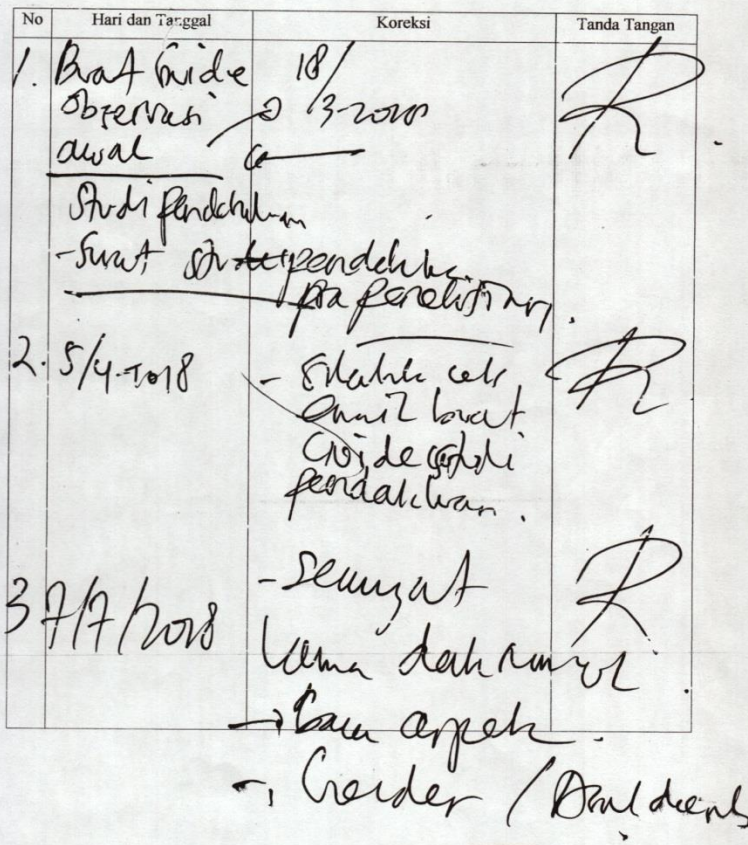 No Hari dan Tanggal Koreksi Tanda Tangan
1. Buat Guide 18/
observasi 3-2018
awal
Studi pendahuluan
- Surat studi pendahuluan
pra penelitian.
2. 5/4-2018 - Silahkan cek
email buat
Guide studi
pendahuluan.
3 7/7/2018 - Semangat
Lama
→ Baca aspek.
Gender /